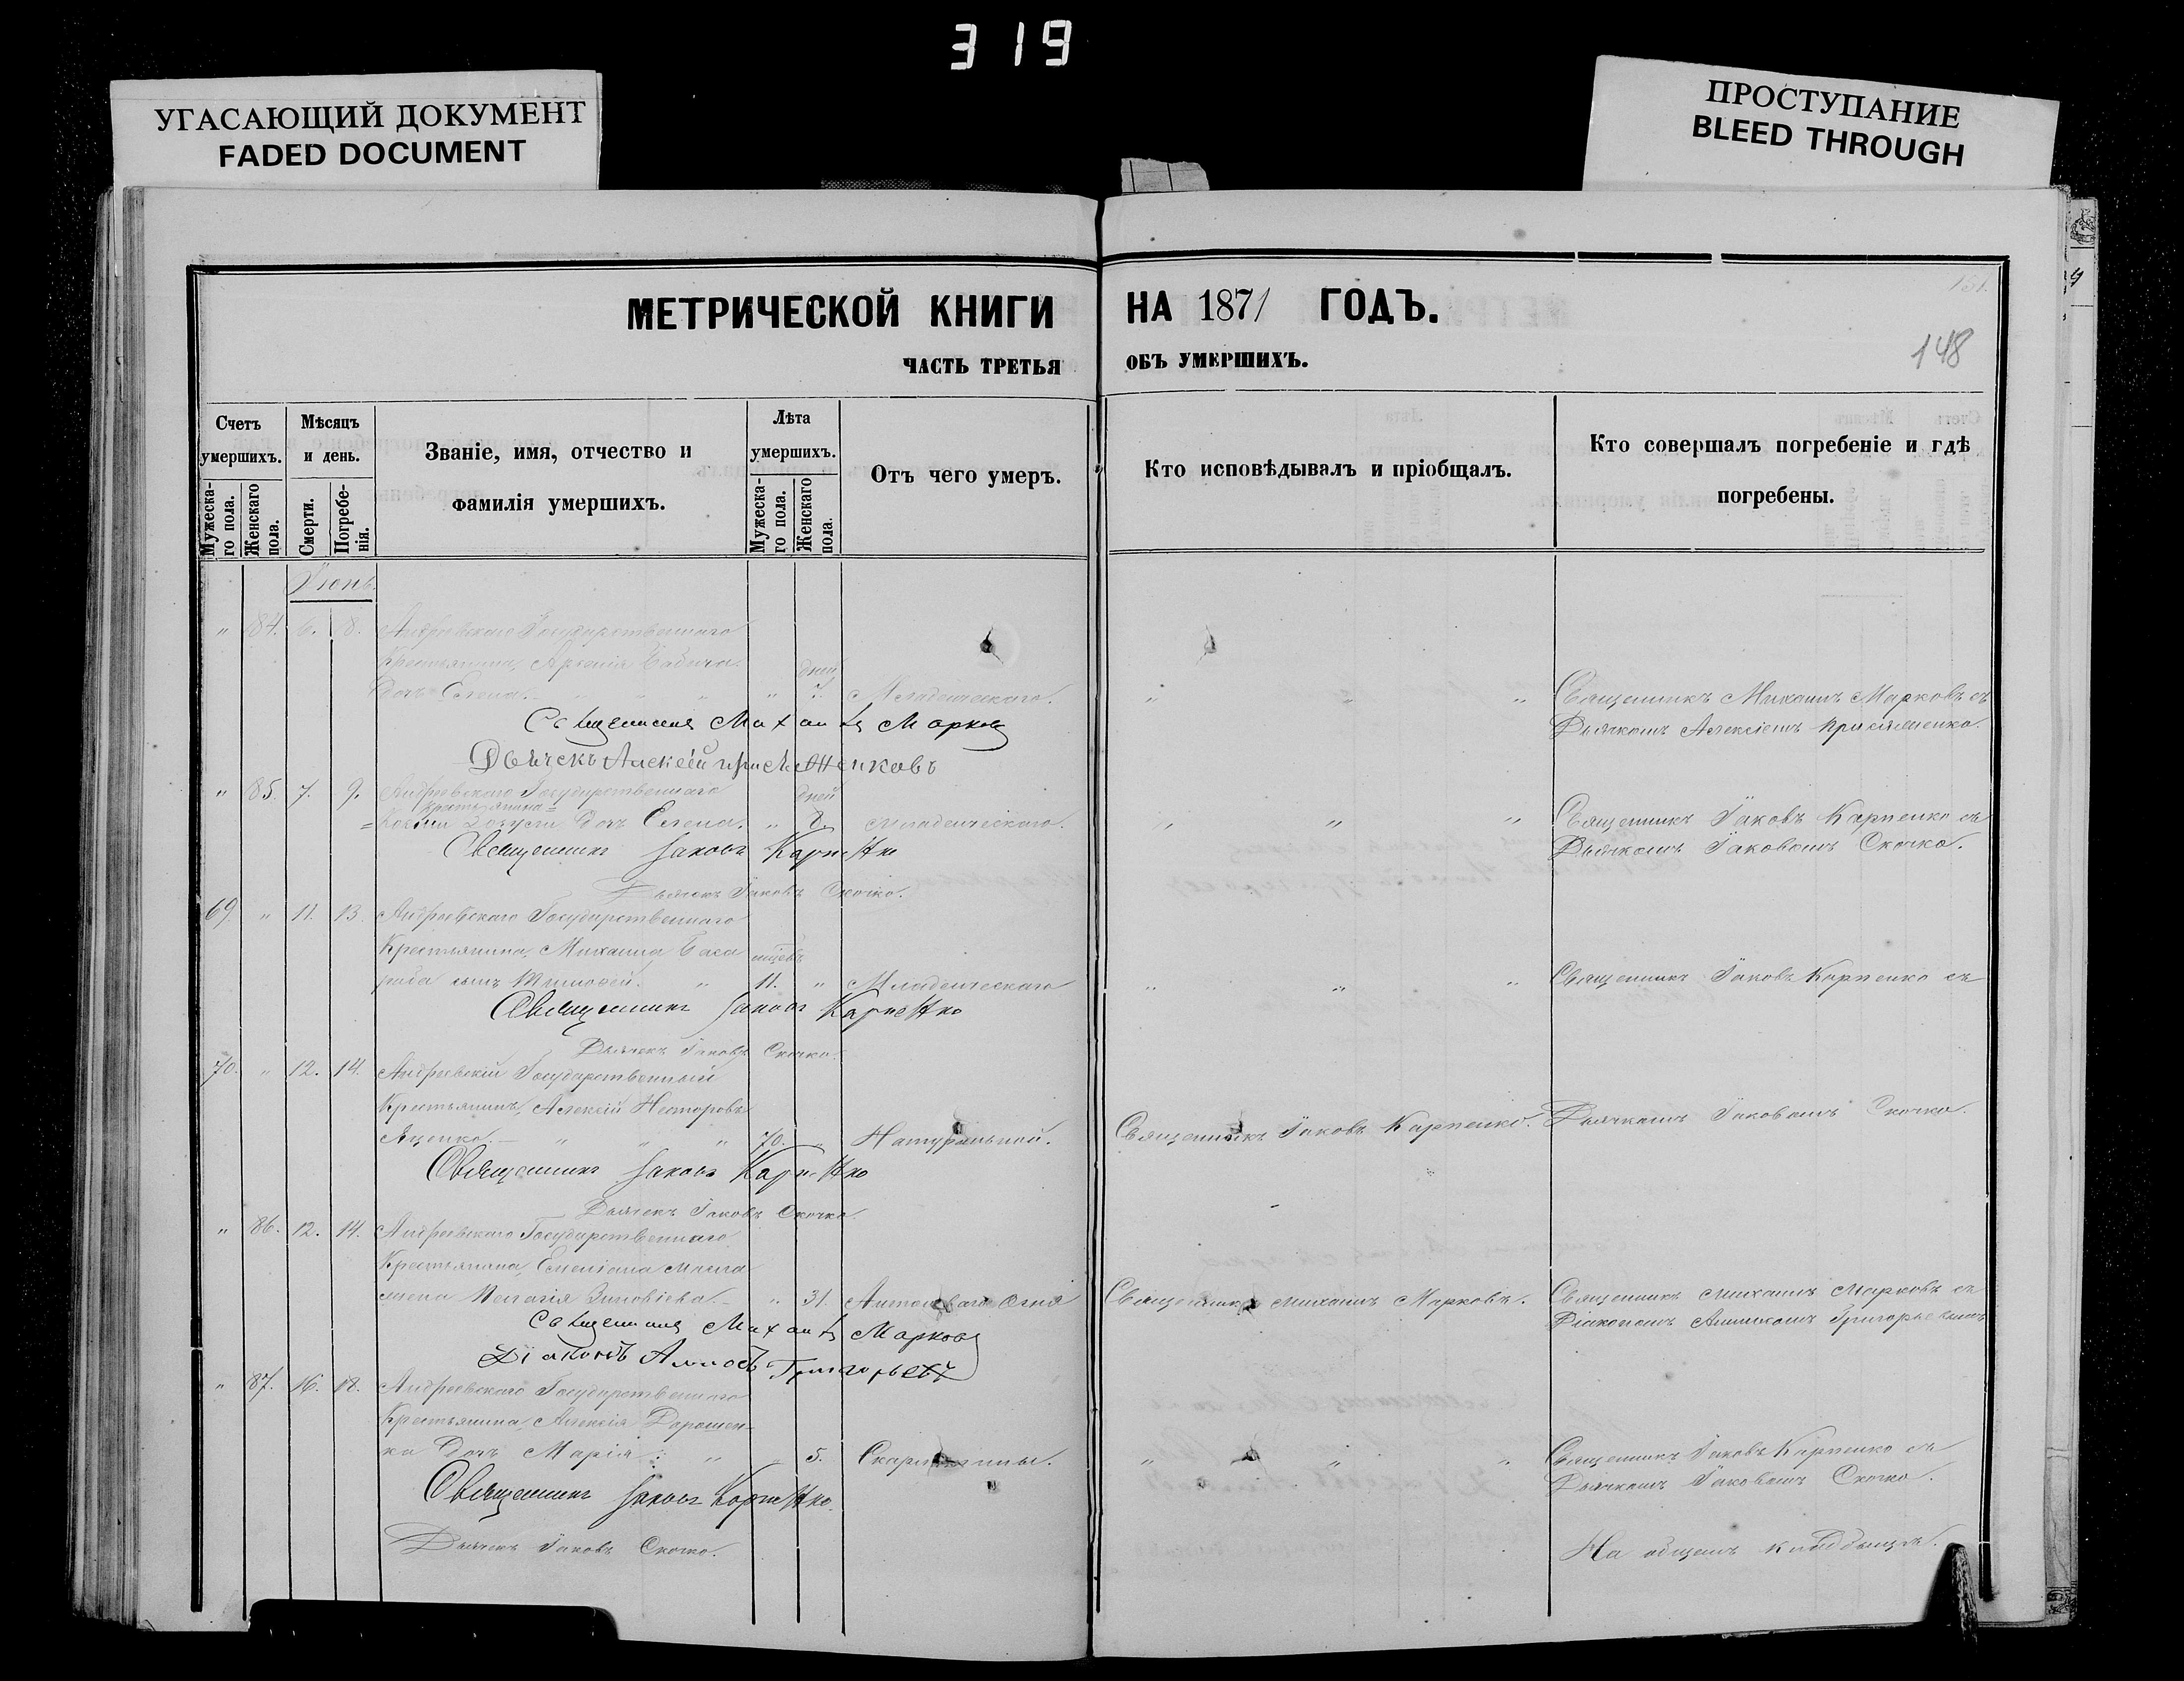 319
УГАСАЮЩИЙ ДОКУМЕНТ
FADED DOCUMENT
ПРОСТУПАНИЕ
BLEED THROUGH
МЕТРИЧЕСКОЙ КНИГИ НА 1871 ГОДЪ.
148
ЧАСТЬ ТРЕТЬЯ ОБЪ УМЕРШИХЪ.
Счетъ умершихъ.
Мужеска-го пола.
Женскаго пола.
Мѣсяцъ и день.
Смерти.
Погребе-нія.
Званіе, имя, отчество и
фамилія умершихъ.
Лѣта умершихъ.
Мужеска-го пола.
Женскаго пола.
Отъ чего умеръ.
Кто исповѣдывалъ и пріобщалъ.
Кто совершалъ погребеніе и гдѣ
погребены.
Іюнь
" 84. 6. 8. Андреевскаго Государственнаго
Крестьянина, Арсенія дней
Дочь Елена. " " " " 7. Младенческаго. " " " Священникъ Михаилъ Марковъ съ
Священникъ Михаилъ Марковъ Дьячкомъ Алексіемъ
Дьячекъ Алексій
" 85. 7. 9. Андреевскаго Государственнаго дней
крестьянина
дочь Елена. " 8. Младенческаго. " " " Священникъ Іаковъ Карпенко съ
Священникъ Іаковъ Карпенко Дьячкомъ Іаковомъ Скочко.
Дьячекъ Іаковъ Скочко.
69. " 11. 13. Андреевскаго Государственнаго
Крестьянина, Михаила
сынъ Тимофей. " 11. " Младенческаго " " " Священникъ Іаковъ Карпенко съ
Священникъ Іаковъ Карпенко
Дьячекъ Іаковъ Скочко.
70. " 12. 14. Андреевскій Государственный
Крестьянинъ, Алексій Несторовъ
Яценко. " " " 70. " Натуральной. Священникъ Іаковъ Карпенко. Дьячкомъ Іаковомъ Скочко.
Священникъ Іаковъ Карпенко
Дьячекъ Іаковъ Скочко.
" 86. 12. 14. Андреевскаго Государственнаго
Крестьянина, Емеліана
жена Пелагія Зиновіева. " 31. Антонова Огня Священникъ Михаилъ Марковъ. Священникъ Михаилъ Марковъ съ
Священникъ Михаилъ Марковъ Діакономъ Григорьевымъ
Діаконъ Григорьевъ
" 87. 16. 18. Андреевскаго Государственнаго
Крестьянина, Алексія Дорошен-
ка Дочь Марія. " " 5. Скарлатины. " " " Священникъ Іаковъ Карпенко съ
Священникъ Іаковъ Карпенко Дьячкомъ Іаковомъ Скочко.
Дьячекъ Іаковъ Скочко.
На общемъ кладбищѣ.